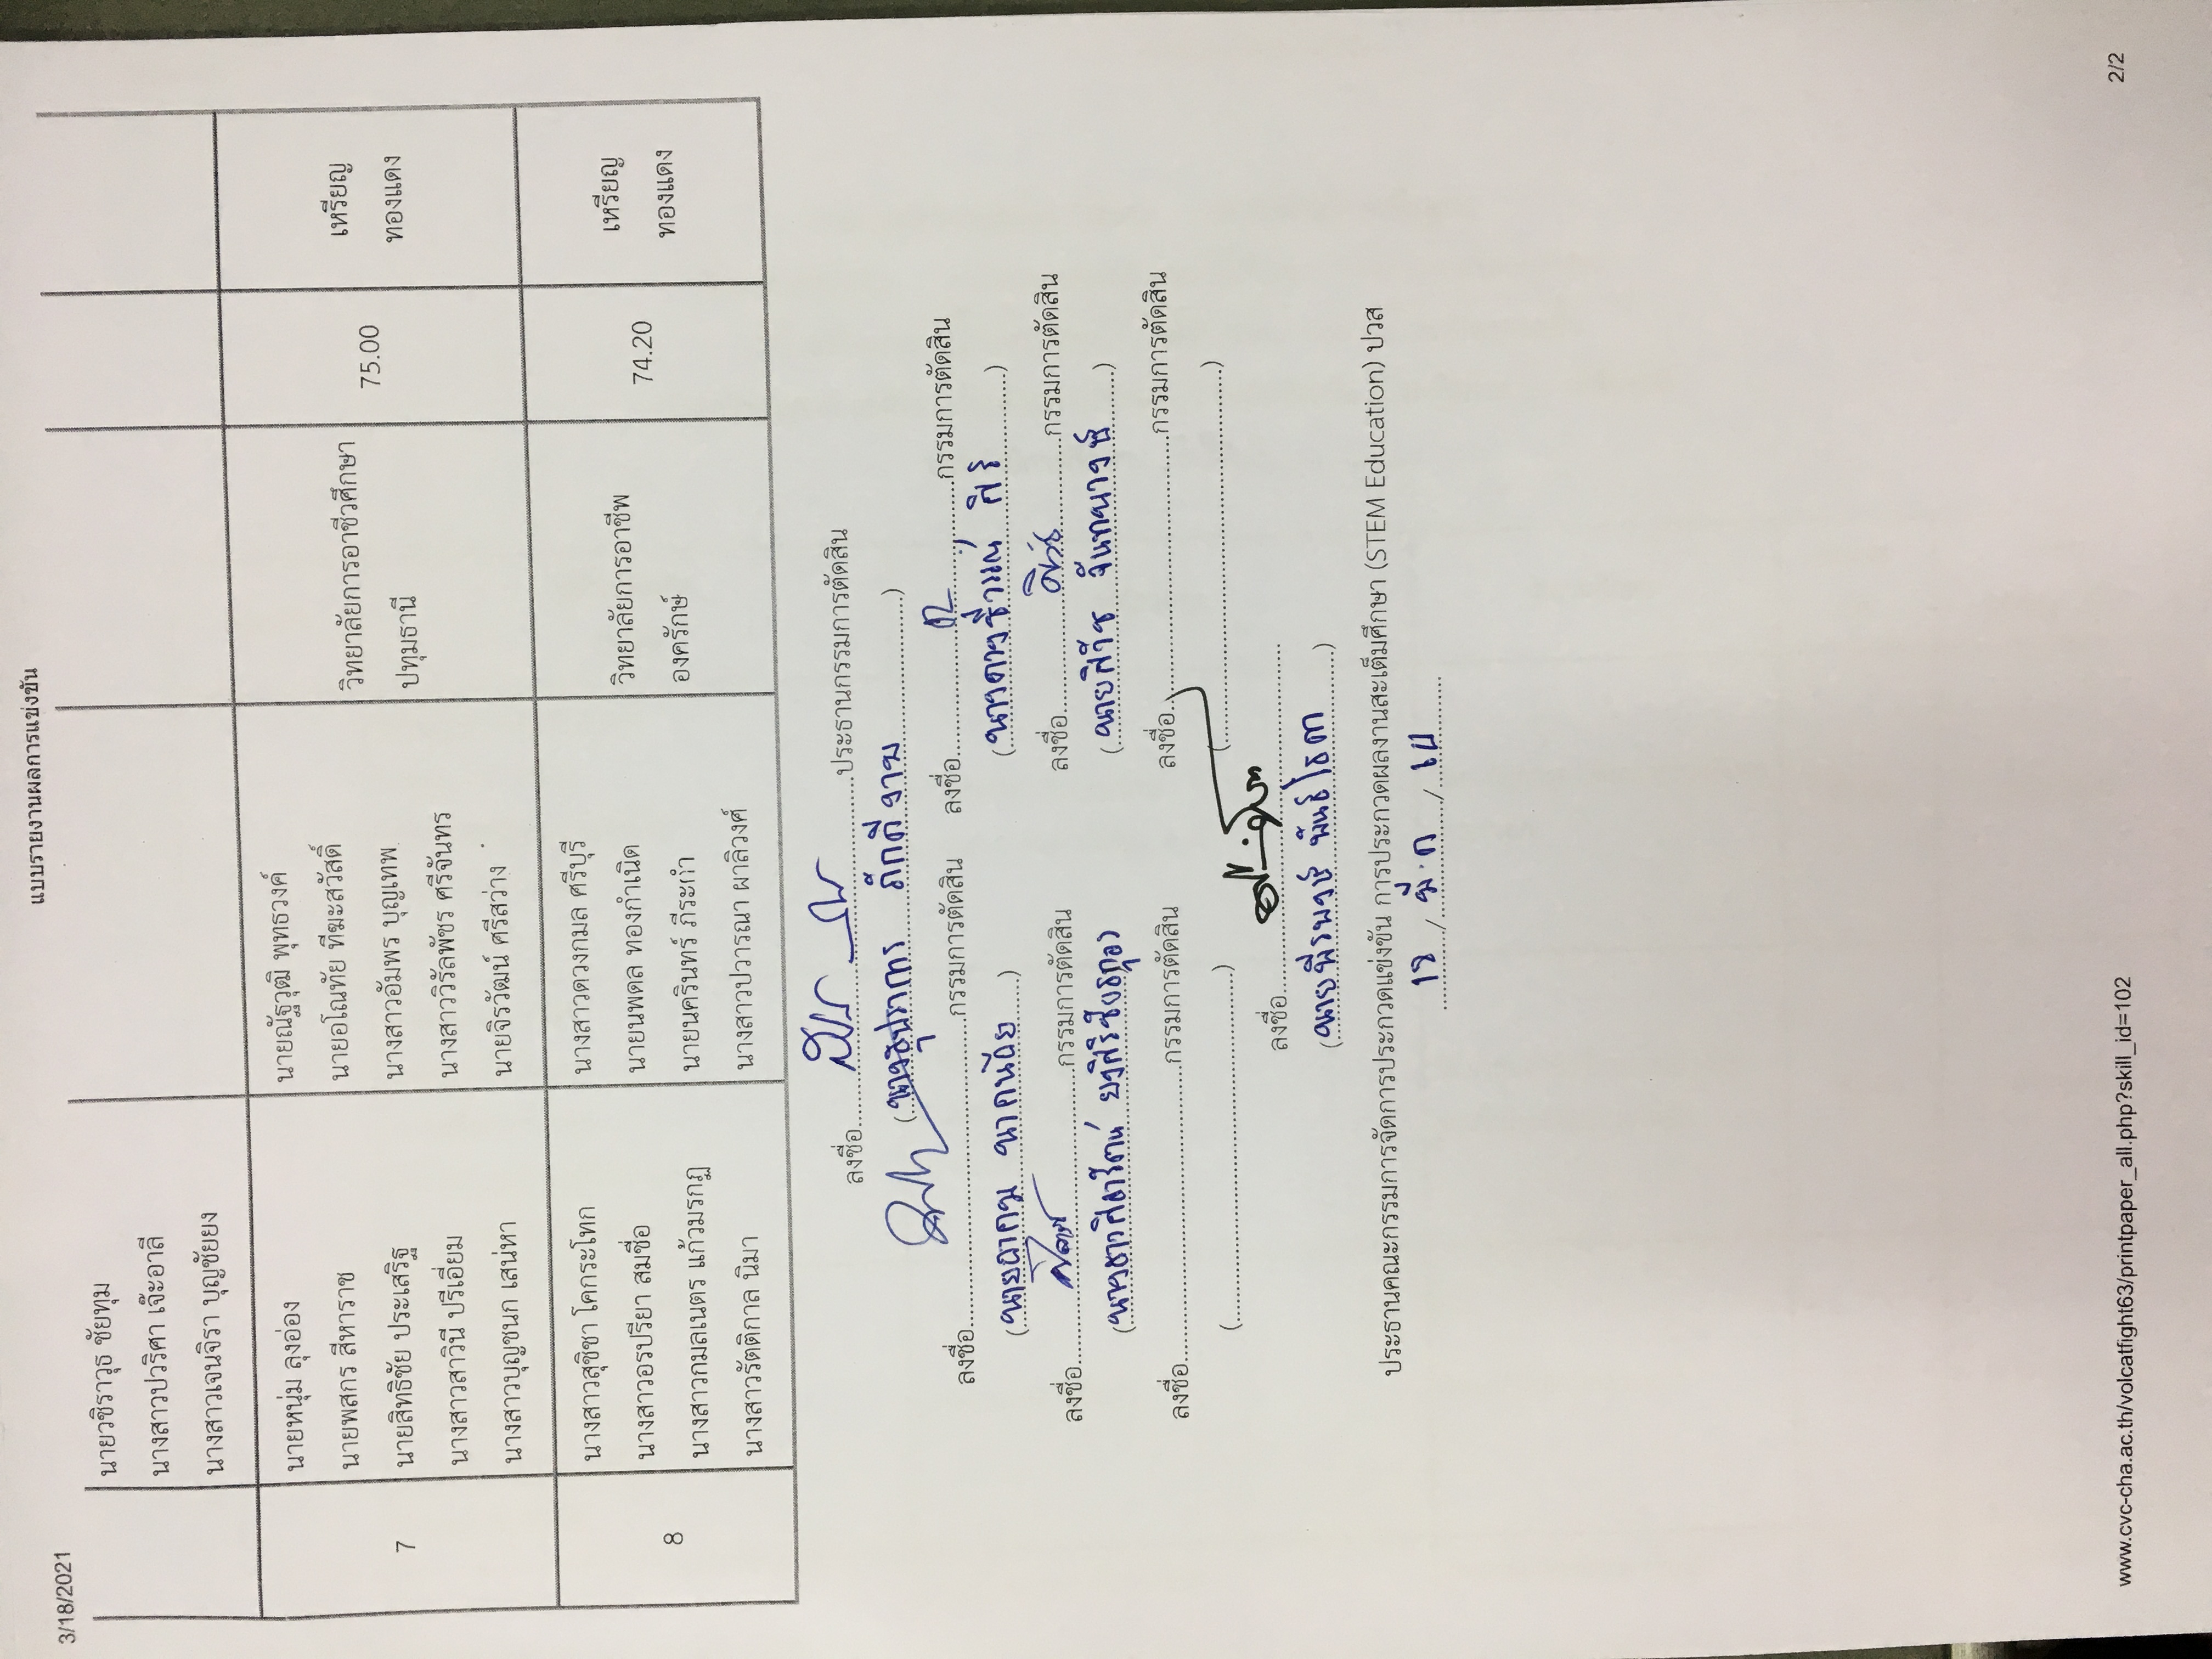 3/18/2021
แบบรายงานผลการแข่งขัน
นายวชิราวุธ ชัยทุม
นางสาวปวริศา เจ๊ะอาลี
นางสาวเจนจิรา บุญชัยยง
7
นายหนุ่ม ลุงอ่อง
นายพสกร สีหาราช
นายสิทธิชัย ประเสริฐ
นางสาวสาวินี ปรีเอี่ยม
นางสาวบุญชนก เสน่หา
นายณัฐวุฒิ พุทธวงค์
นายอโณทัย ทีฆะสวัสดิ์
นางสาวอัมพร บุญเทพ
นางสาววิรัลพัชร ศรีจันทร
นายจิรวัฒน์ ศรีสว่าง
วิทยาลัยการอาชีวศึกษา
ปทุมธานี
75.00
เหรียญ
ทองแดง
8
นางสาวสุชิชา โคกกระโทก
นางสาวอรปรียา สมชื่อ
นางสาวกมลเนตร แก้วมรกฎ
นางสาวรัตติกาล นิมา
นางสาวดวงกมล ศรีบุรี
นายนพดล ทองกำเนิด
นายนครินทร์ ภีระกำ
นางสาวปวารณา ผาลิวงศ์
วิทยาลัยการอาชีพ
องครักษ์
74.20
เหรียญ
ทองแดง
ลงชื่อ..........ประธานกรรมการตัดสิน
(นางสุปราการ ภักดีงาม)
ลงชื่อ..........กรรมการตัดสิน ลงชื่อ..........กรรมการตัดสิน
(นาย นาคน้อย) (นาง ศิริ)
ลงชื่อ..........กรรมการตัดสิน ลงชื่อ..........กรรมการตัดสิน
(นางสาว) (นาย)
ลงชื่อ..........กรรมการตัดสิน ลงชื่อ..........กรรมการตัดสิน
(..........) (..........)
ลงชื่อ..........
(นายพีรพงษ์ พันธ์โสดา)
ประธานคณะกรรมการจัดการประกวดแข่งขัน การประกวดผลงานสะเต็มศึกษา (STEM Education) ปวส
๑๘ / มี.ค / ๖๔
www.cvc-cha.ac.th/volcatfight63/printpaper_all.php?skill_id=102
2/2